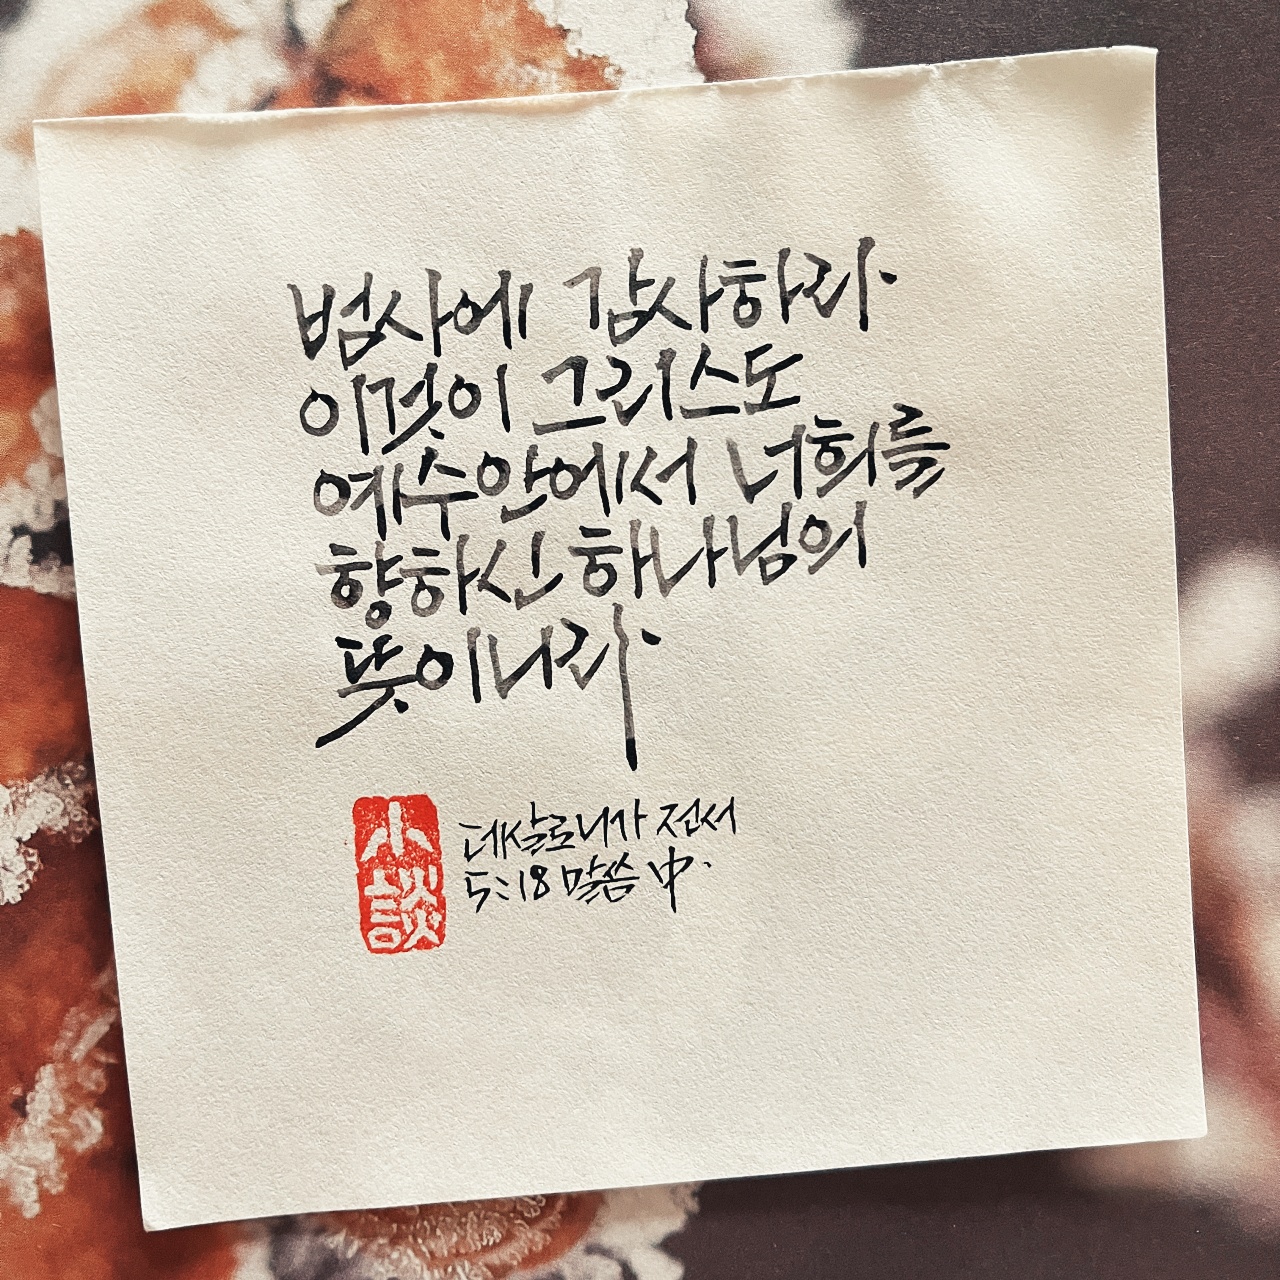 범사에 감사하라.
이것이 그리스도
예수안에서 너희를
향하신 하나님의
뜻이니라.
小談
데살로니가 전서
5:18 말씀 中.